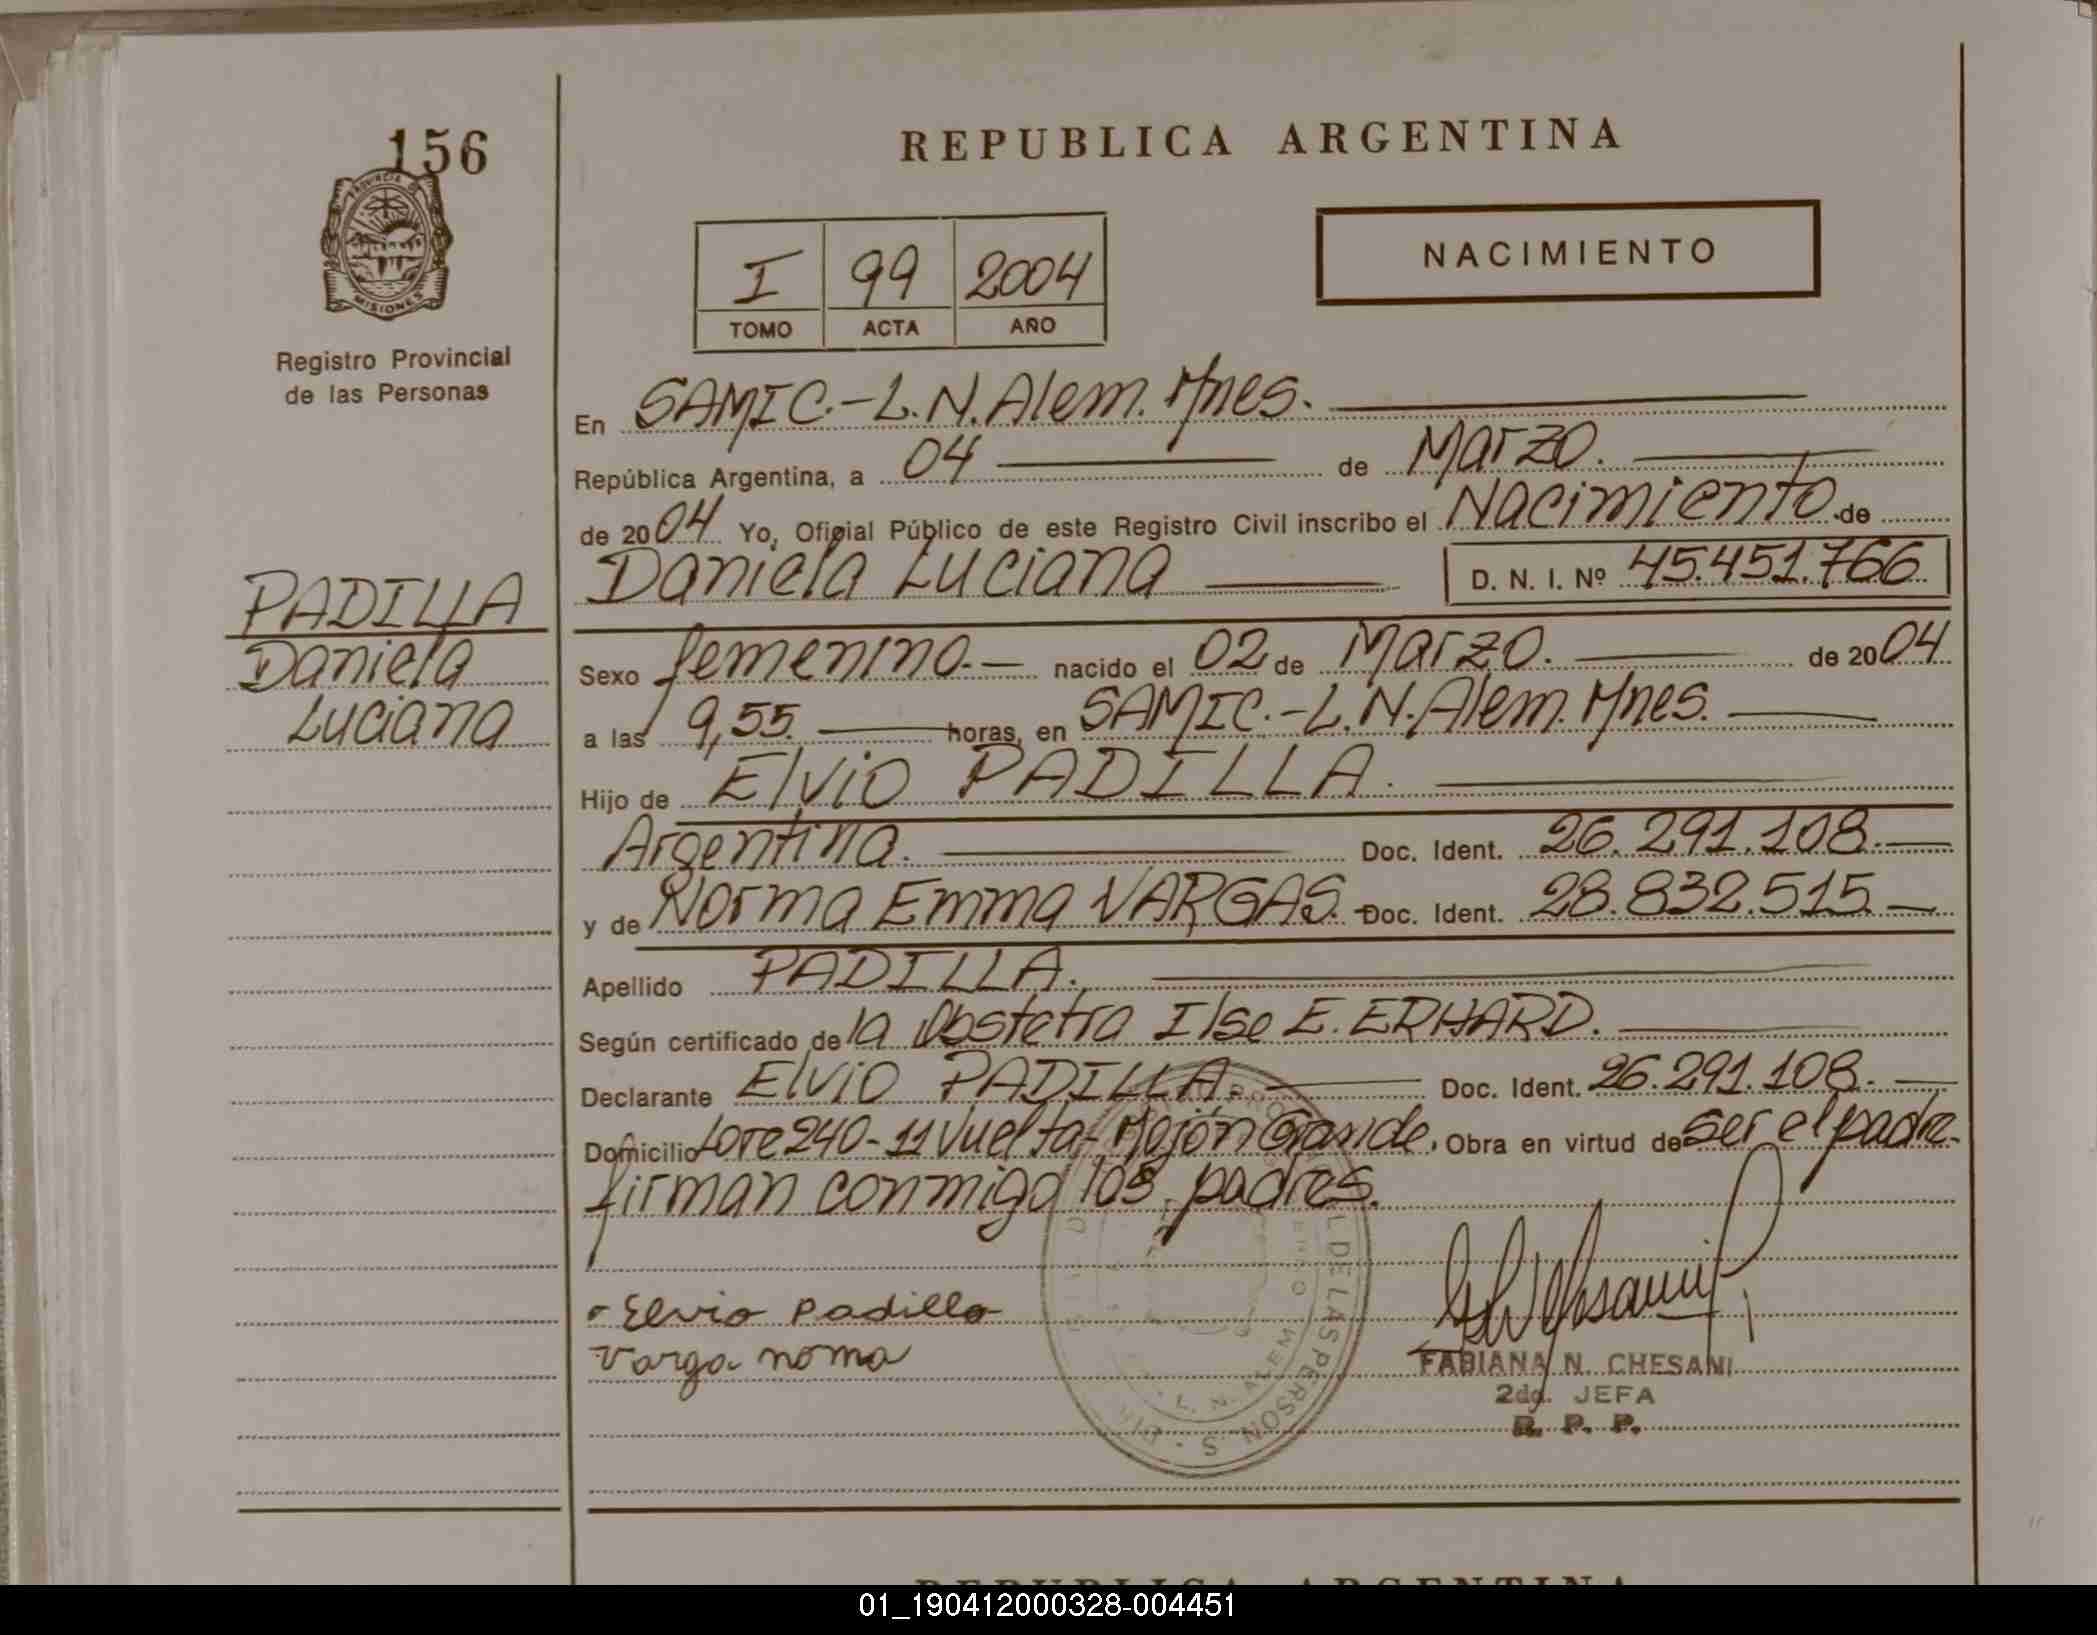 156
PROVINCIA DE
MISIONES
Registro Provincial
de las Personas
REPUBLICA ARGENTINA
I 99 2004
TOMO ACTA AÑO
NACIMIENTO
En SAMIC.-L.N.Alem.Mnes.
República Argentina, a 04 de Marzo.
de 2004 Yo, Oficial Público de este Registro Civil inscribo el Nacimiento de
Daniela Luciana D. N. I. Nº 45.451.766
PADILLA
Daniela
Luciana
Sexo femenino.- nacido el 02 de Marzo. de 2004
a las 9,55. horas, en SAMIC.-L.N.Alem.Mnes.
Hijo de Elvio PADILLA.
Argentina. Doc. Ident. 26.291.108.-
y de Norma Emma VARGAS. Doc. Ident. 28.832.515.-
Apellido PADILLA.
Según certificado de la Obstetra Ilse E. ERHARD.
Declarante Elvio PADILLA Doc. Ident. 26.291.108.-
Domicilio Lote 240-11 Vuelta-Mojón Grande. Obra en virtud de ser el padre.
firman conmigo los padres.
Elvio Padilla
Varga noma
FABIANA N. CHESANI
2da. JEFA
R. P. P.
L. N. ALEM
DE LAS PERSONAS
REPUBLICA ARGENTINA
01_190412000328-004451